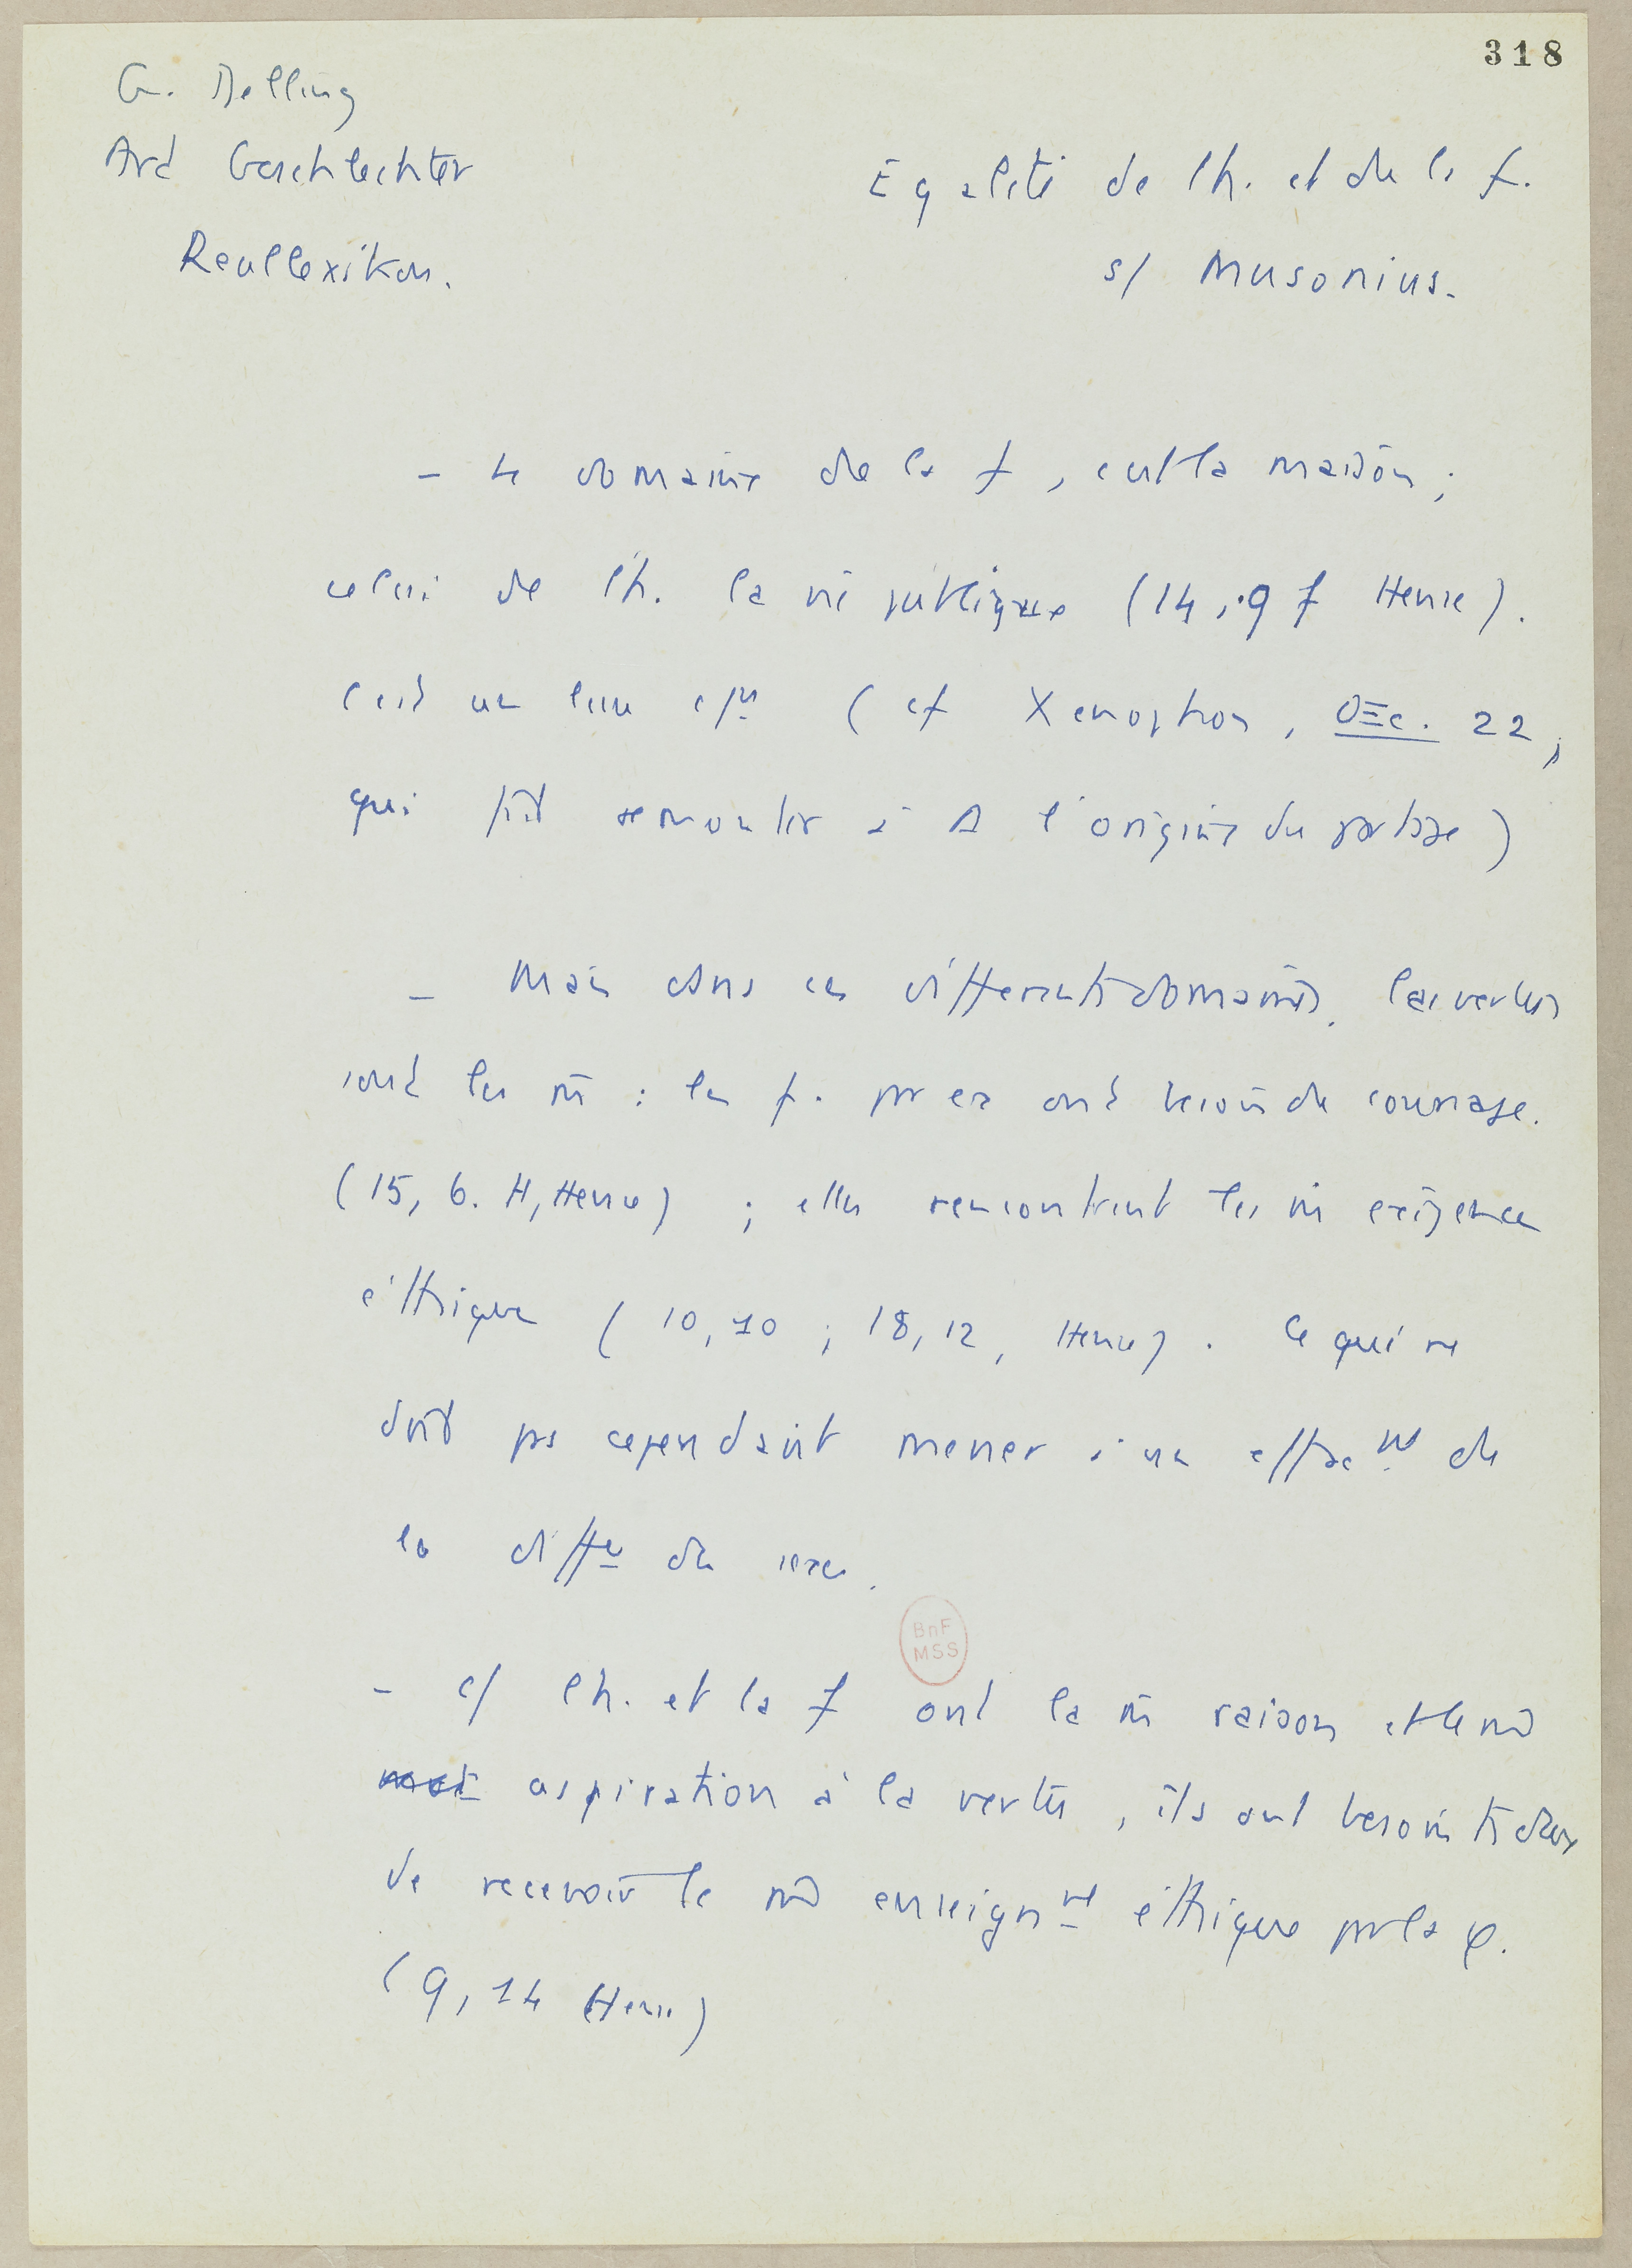 318
G. Delling
Art Geschlechter
Reallexikon.
Egalité de lh. et de la f.
s/ Musonius.
- Le domaine de la f, c'est la maison ;
celui de lh. la vie publique (14, 9 f Hense).
C'est un lieu c/n (cf Xenophon, OEc. 22 ;
qui fait remonter à Δ l'origine du partage)
- Mais dans ces différents domaines, les vertus
sont les m̄ : les f. par ex ont besoin de courage.
(15, 6. H, Hense) ; elles rencontrent les m̄ exigences
éthiques (10, 10 ; 18, 12, Hense). Ce qui ne
doit pas cependant mener à un effact de
la diffce des sexes.
- c/ lh. et la f ont la m̄ raison et le m̄
aspiration à la vertu, ils ont besoin ts deux
de recevoir le m̄ enseignmt éthique par la φ.
(9, 14 Hense)
BnF
MSS